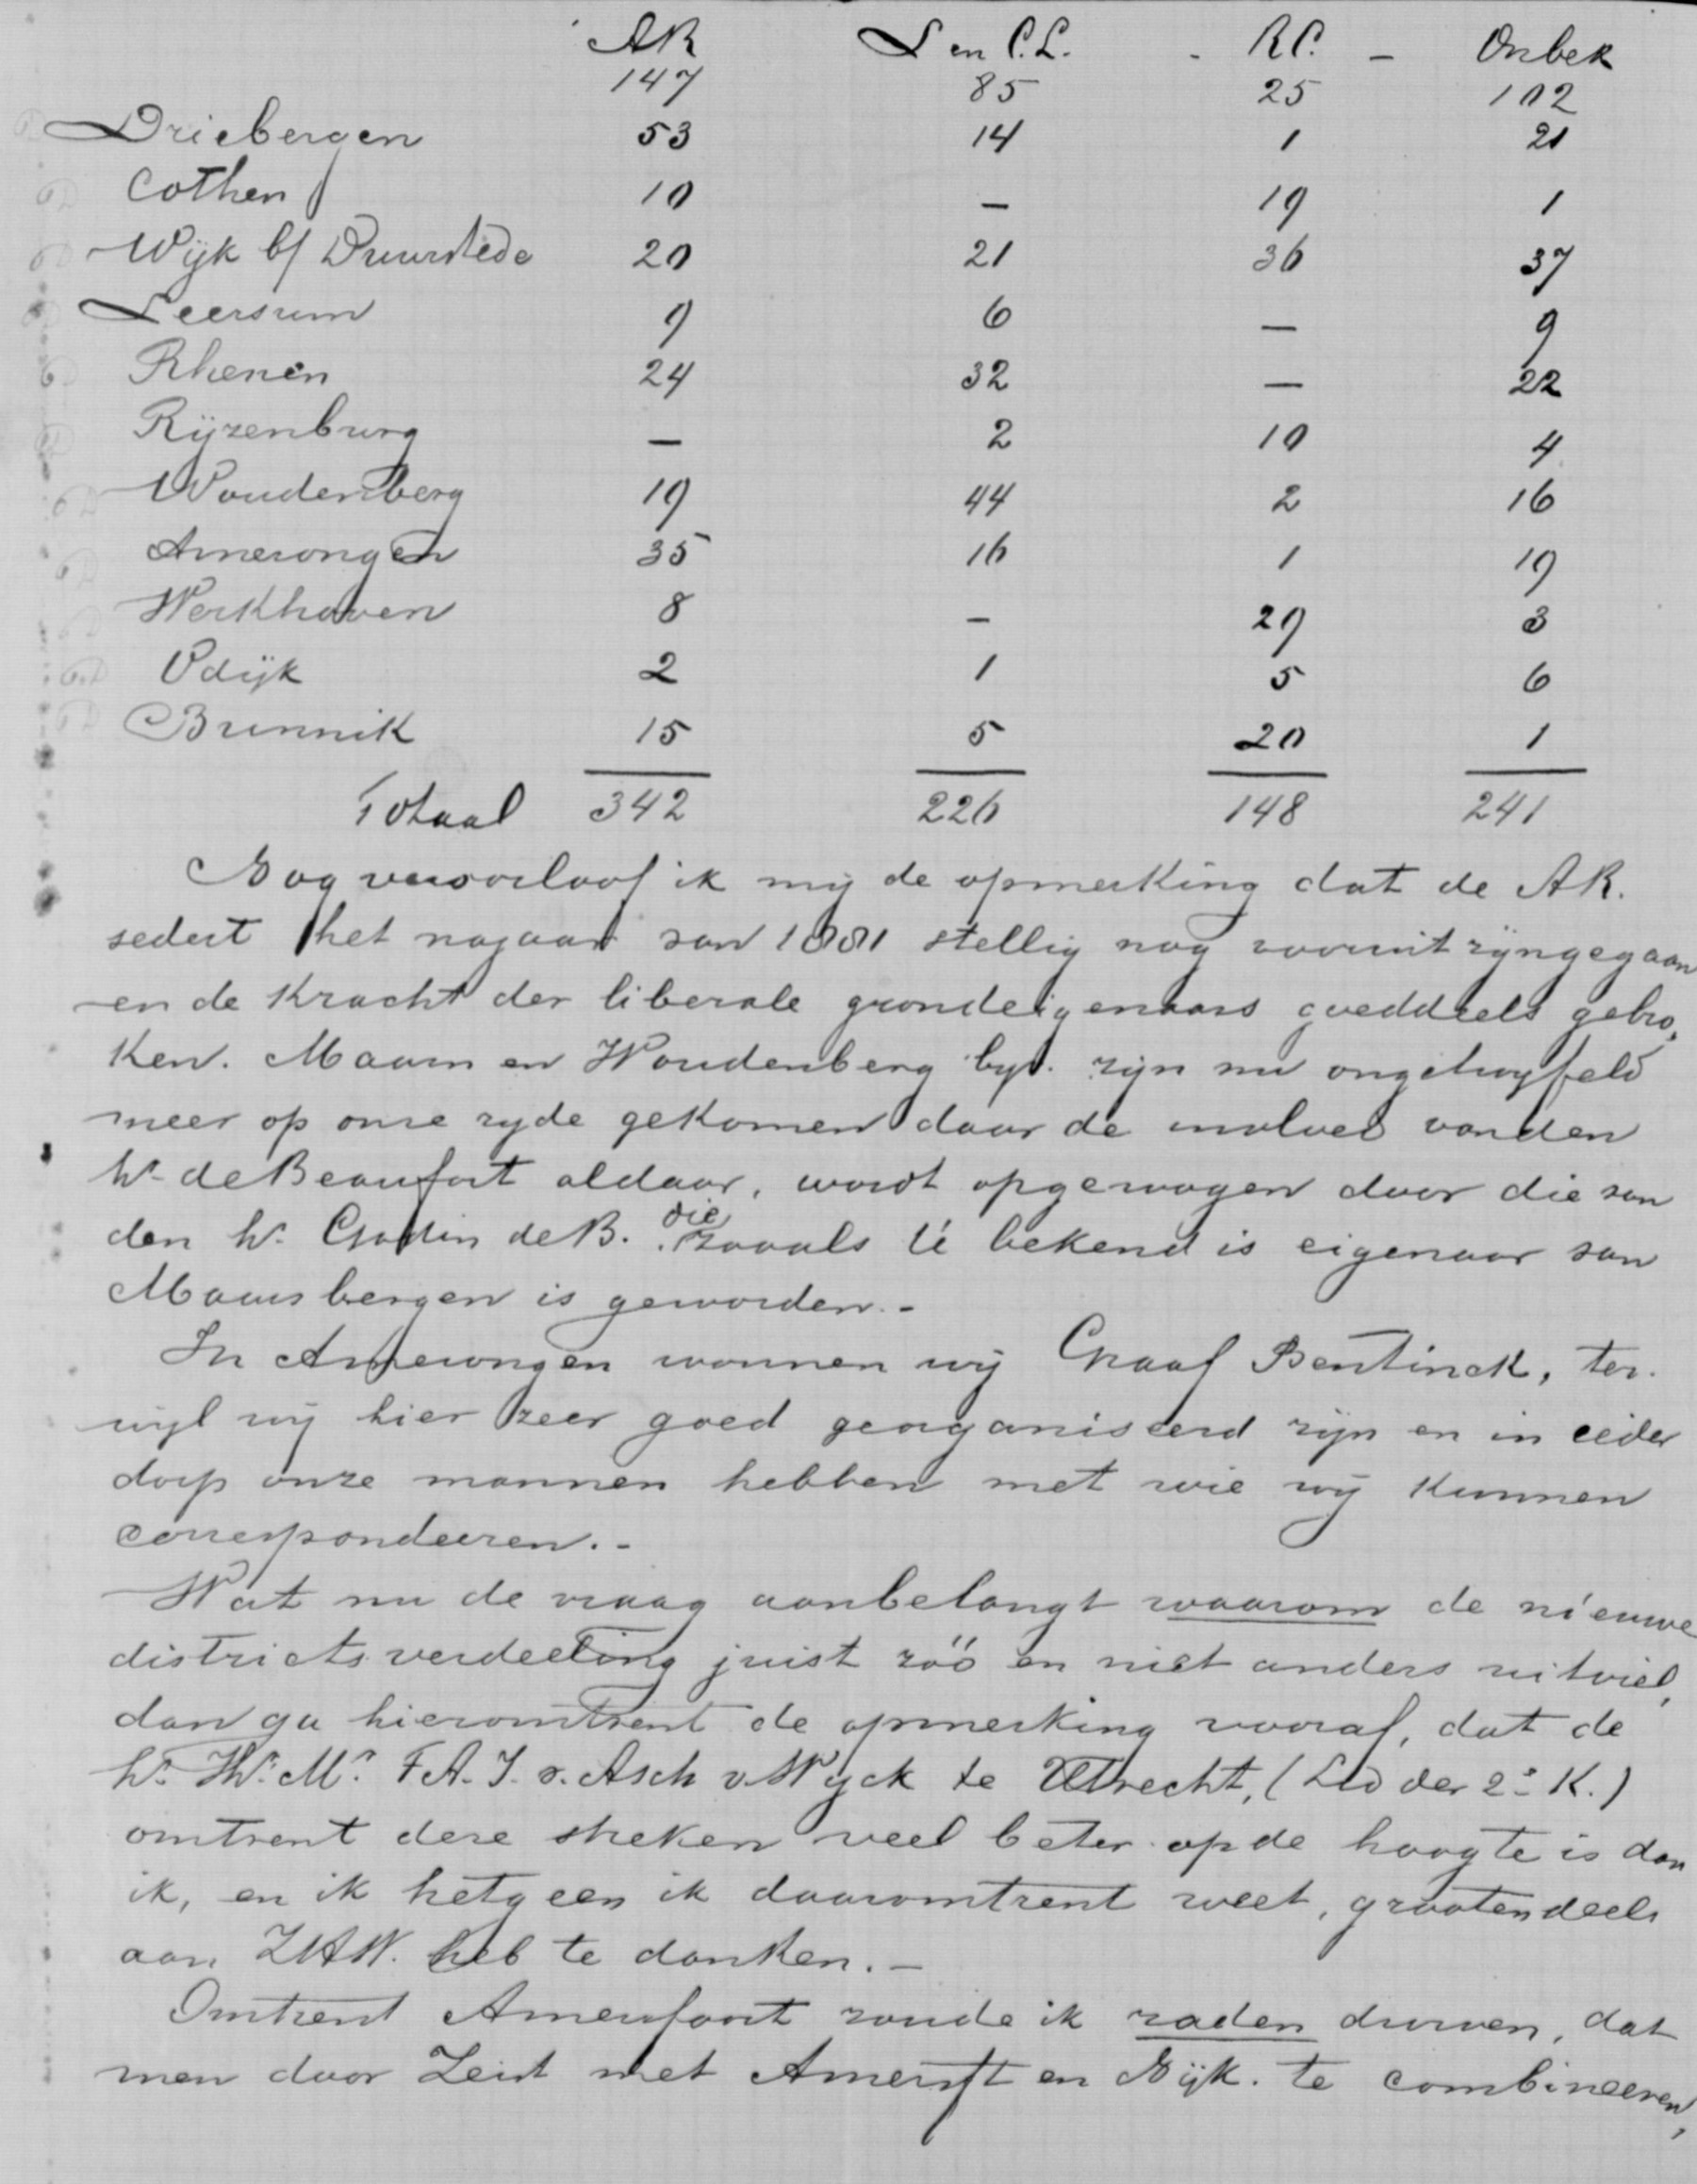 AR L en C.L. - R.C. - Onbek
147 85 25 102
Driebergen 53 14 1 21
Cothen 10 — 19 1
Wijk b/ Duurstede 20 21 36 37
Leersum 9 6 — 9
Rhenen 24 32 — 22
Rijzenburg — 2 10 4
Woudenberg 19 44 2 16
Amerongen 35 16 1 19
Werkhoven 8 — 29 3
Odijk 2 1 5 6
Bunnik 15 5 20 1
Totaal 342 226 148 241
Nog veroorloof ik mij de opmerking dat de AR.
sedert het najaar van 1881 stellig nog vooruit zijn gegaan
en de kracht der liberale grondeigenaars goeddeels gebro-
ken. Maarn en Woudenberg bijv. zijn nu ongetwyfeld
meer op onze zyde gekomen daar de invloed van den
hr. de Beaufort aldaar, wordt opgewogen door die van
den hr. Godin de B. die zooals U bekend is eigenaar van
Maarsbergen is geworden. -
In Amerongen wonnen wij Graaf Bentinck, ter-
wijl wij hier zeer goed georganiseerd zijn en in ieder
dorp onze mannen hebben met wie wij kunnen
correspondeeren. -
Wat nu de vraag aanbelangt waarom de nieuwe
districtsverdeeling juist zóó en niet anders uitviel,
dan ga hieromtrent de opmerking vooraf, dat de
hr. Mr. v. Asch v. Wyck te Utrecht, (Lid der 2e K.)
omtrent deze streken veel beter op de hoogte is dan
ik, en ik hetgeen ik daaromtrent weet, grootendeels
aan heb te danken. -
Omtrent Amersfoort zoude ik raden durven, dat
men door Zeist met Amersft en Nijk. te combineeren,